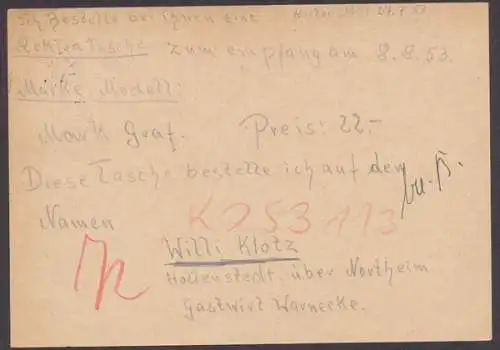 Ich Bestelle bei Ihnen eine
27.7.53
Tasche zum empfang am 8.8.53.
Marke Modell:
Mark Graf. Preis: 22.-
Diese Tasche bestelle ich auf den
Namen
KO 53113
Willi Klotz
Hollenstedt über Northeim
Gastwirt Warnecke.